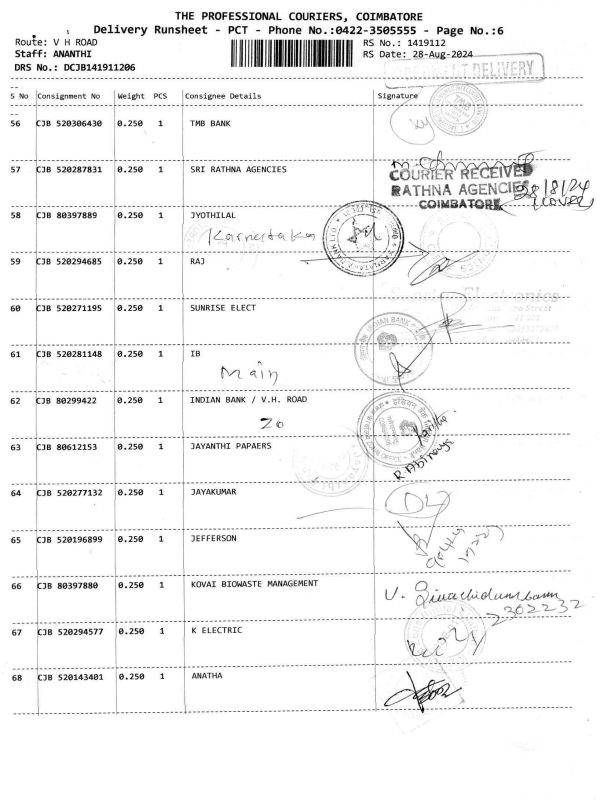 THE PROFESSIONAL COURIERS, COIMBATORE
Delivery Runsheet - PCT - Phone No.:0422-3505555 - Page No.:6
Route: V H ROAD
RS No.: 1419112
Staff: ANANTHI
RS Date: 28-Aug-2024
DRS No.: DCJB141911206
DELIVERY
S No Consignment No Weight PCS Consignee Details Signature
56 CJB 520306430 0.250 1 TMB BANK
57 CJB 520287831 0.250 1 SRI RATHNA AGENCIES
COURIER RECEIVED
RATHNA AGENCIES 28/8/24
COIMBATORE
58 CJB 80397889 0.250 1 JYOTHILAL
Karnataka
59 CJB 520294685 0.250 1 RAJ
60 CJB 520271195 0.250 1 SUNRISE ELECT
INDIAN BANK
61 CJB 520281148 0.250 1 IB
Main
62 CJB 80299422 0.250 1 INDIAN BANK / V.H. ROAD
Zo
63 CJB 80612153 0.250 1 JAYANTHI PAPAERS
64 CJB 520277132 0.250 1 JAYAKUMAR
65 CJB 520196899 0.250 1 JEFFERSON
66 CJB 80397880 0.250 1 KOVAI BIOWASTE MANAGEMENT
2302232
67 CJB 520294577 0.250 1 K ELECTRIC
68 CJB 520143401 0.250 1 ANATHA